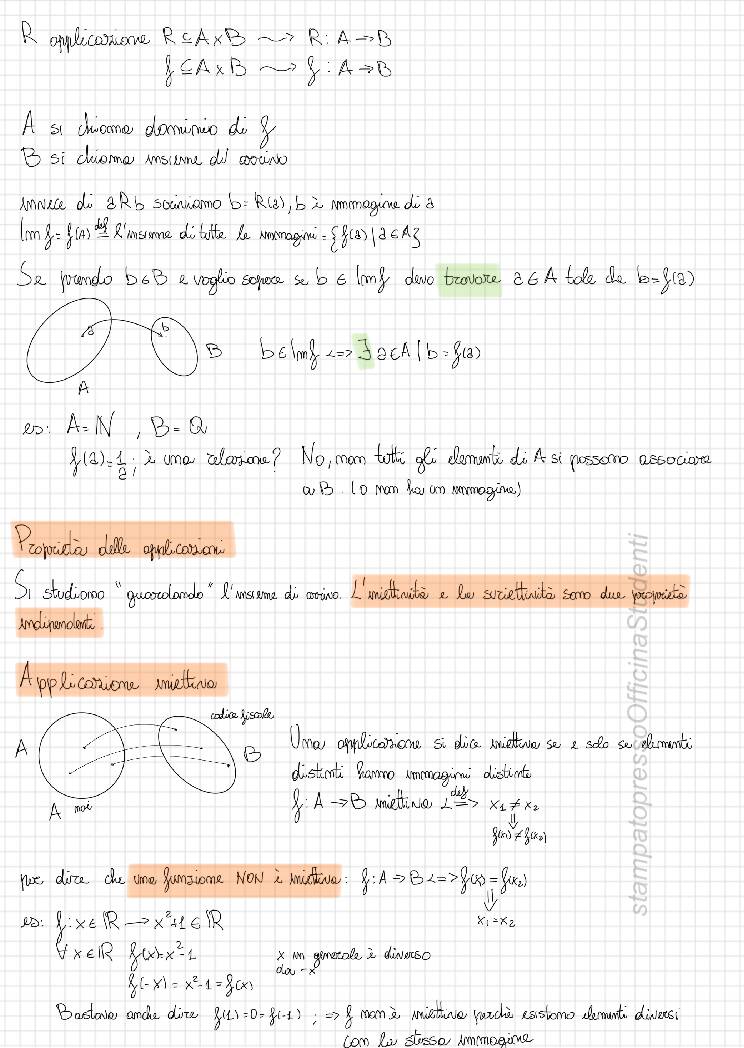 R applicazione R ⊆ A x B ⤳ R: A → B
f ⊆ A x B ⤳ f : A → B
A si chiama dominio di f
B si chiama insieme di arrivo
invece di a R b scriviamo b = R(a), b è immagine di a
Im f = f(A) def = l'insieme di tutte le immagini = {f(a) | a ∈ A}
Se prendo b ∈ B e voglio sapere se b ∈ Im f devo trovare a ∈ A tale che b = f(a)
a b
A B
b ∈ Im f <=> ∃ a ∈ A | b = f(a)
es: A = ℕ , B = Q
f(a) = 1/a ; è una relazione? No, non tutti gli elementi di A si possono associare
a B. (0 non ha un immagine)
Proprietà delle applicazioni
Si studiano "guardando" l'insieme di arrivo. L'iniettività e la suriettività sono due proprietà
indipendenti.
Applicazione iniettiva
codice fiscale
A B
A noi
Una applicazione si dice iniettiva se e solo se elementi
distinti hanno immagini distinte
f: A → B iniettiva <=def=> x₁ ≠ x₂
⇓
f(x₁) ≠ f(x₂)
per dire che una funzione NON è iniettiva: f: A → B <=> f(x) = f(x₂)
⇓
x₁ = x₂
es: f: x ∈ ℝ → x²+1 ∈ ℝ
∀ x ∈ ℝ f(x) = x²-1 x in generale è diverso
da -x
f(-x) = x²-1 = f(x)
Bastava anche dire f(1) = 0 = f(-1) ; => f non è iniettiva perchè esistono elementi diversi
con la stessa immagine
stampatopressoOfficinaStudenti